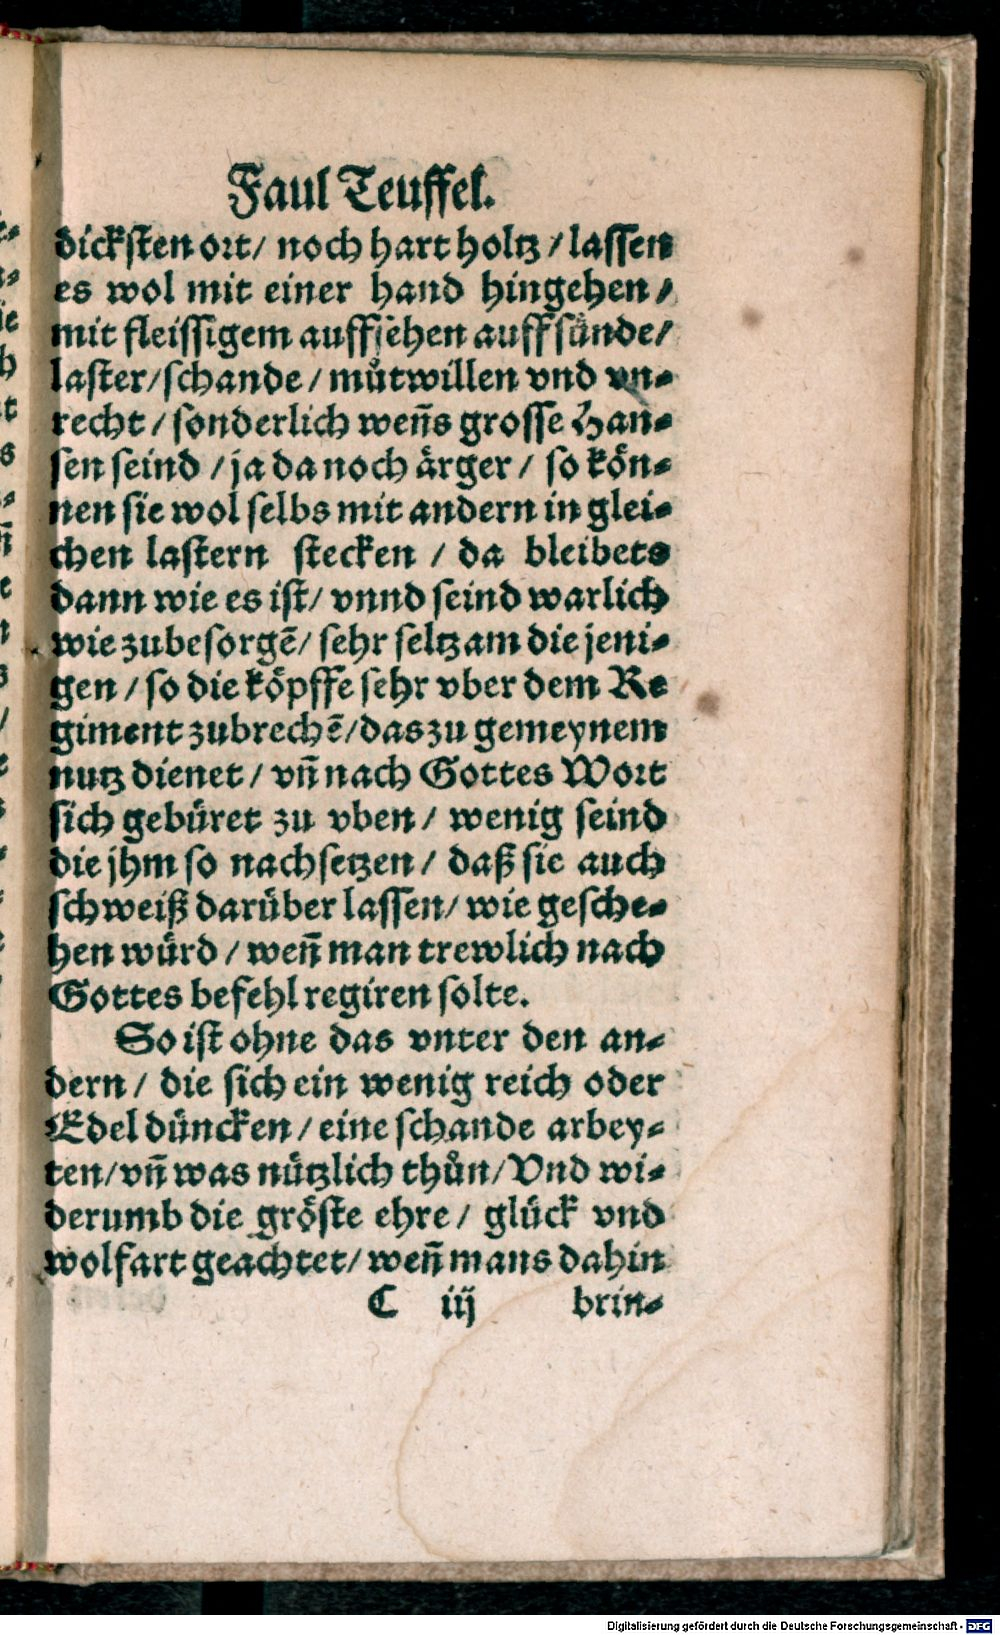 Faul Teuffel.
dicksten ort/ noch hart holtz / lassen
es wol mit einer hand hingehen /
mit fleissigem auffsehen auff sünde/
laster/schande / můtwillen vnd vn-
recht / sonderlich weñs grosse Han-
sen seind / ja da noch ärger / so kön-
nen sie wol selbs mit andern in glei-
chen lastern stecken / da bleibets
dann wie es ist/ vnnd seind warlich
wie zubesorgẽ/ sehr seltzam die jeni-
gen / so die köpffe sehr vber dem Re
giment zubrechẽ/das zu gemeynem
nutz dienet / vñ nach Gottes Wort
sich gebüret zu vben / wenig seind
die jhm so nachsetzen / daß sie auch
schweiß darüber lassen/ wie gesche-
hen würd / weñ man trewlich nach
Gottes befehl regiren solte.
So ist ohne das vnter den an-
dern / die sich ein wenig reich oder
Edel düncken / eine schande arbey-
ten/vñ was nützlich thůn/ Vnd wi-
derumb die gröste ehre / glück vnd
wolfart geachtet/ weñ mans dahin
C iij brin-
Digitalisierung gefördert durch die Deutsche Forschungsgemeinschaft - DFG